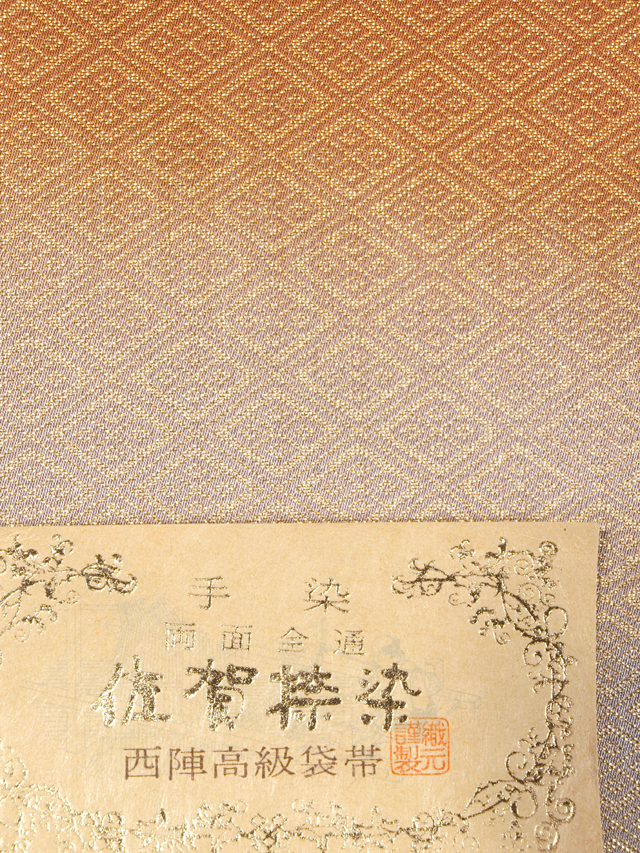 手染
両面全通
佐賀捺染
西陣高級袋帯
織元
謹製